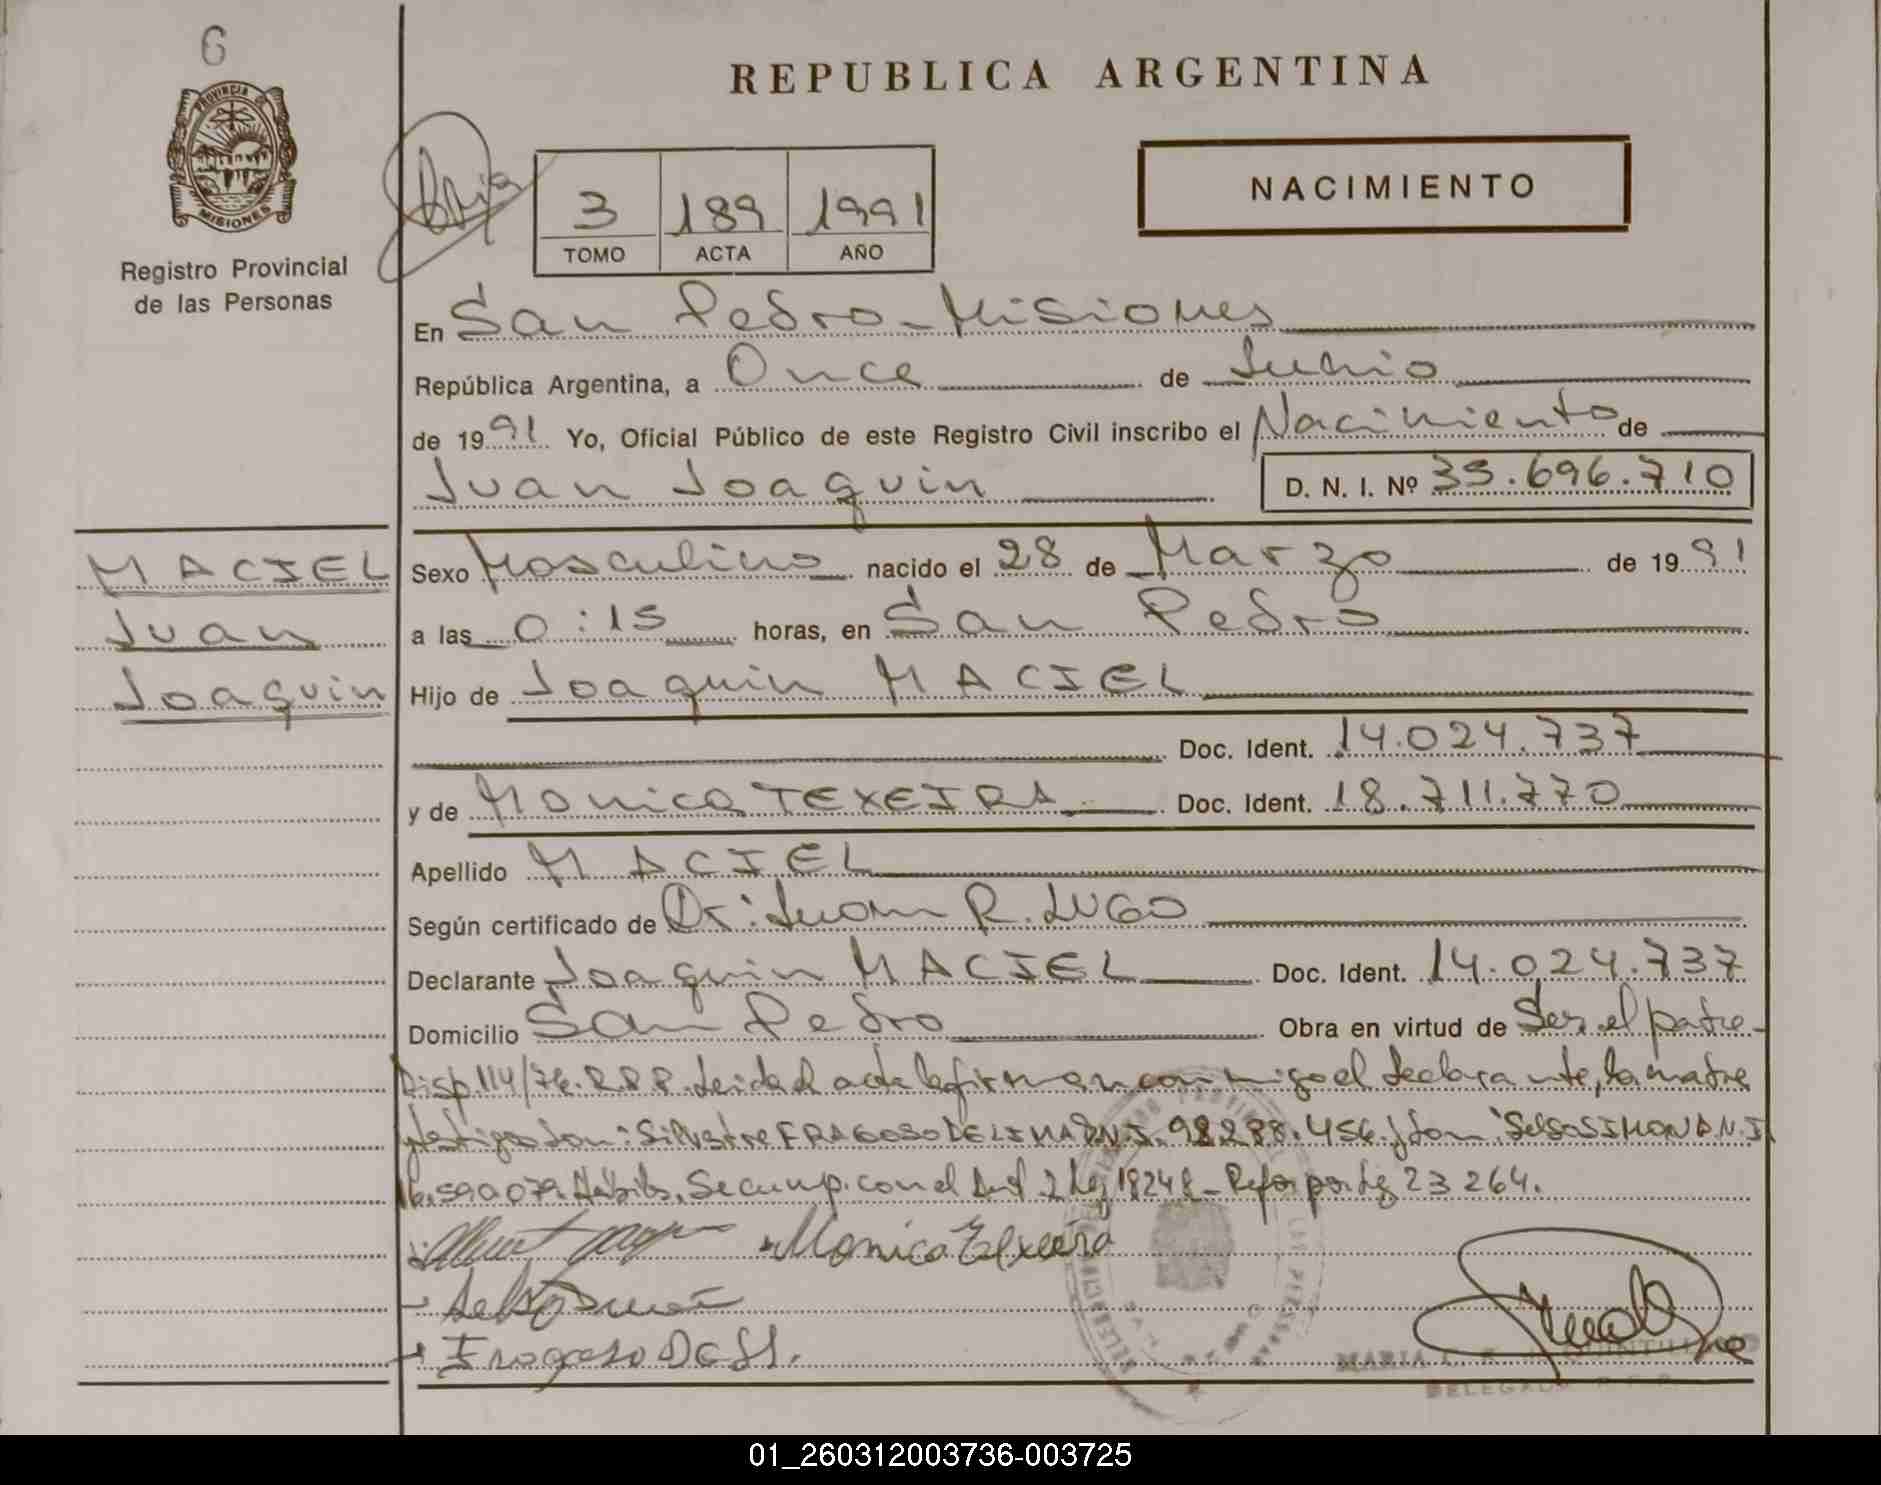 6
PROVINCIA DE
MISIONES
Registro Provincial
de las Personas
REPUBLICA ARGENTINA
NACIMIENTO
3 189 1991
TOMO ACTA AÑO
En San Pedro - Misiones
República Argentina, a Once de Junio
de 1991 Yo, Oficial Público de este Registro Civil inscribo el Nacimiento de
Juan Joaquin D. N. I. Nº 35.696.710
MACIEL
Juan
Joaquin
Sexo Masculino nacido el 28 de Marzo de 1991
a las 0:15 horas, en San Pedro
Hijo de Joaquin MACIEL
Doc. Ident. 14.024.737
y de Monica TEXEIRA Doc. Ident. 18.711.770
Apellido MACIEL
Según certificado de Dr: Juan R. LUGO
Declarante Joaquin MACIEL Doc. Ident. 14.024.737
Domicilio San Pedro Obra en virtud de Ser el padre-
Disp 114/76. R.P.P. Leida el acta la firman conmigo el declarante, la madre
y testigos Don: Silvestre FRAGOSO DE LIMA D.N.I. 98.288.456 y Don: Selso SIMON D.N.I
16.590079 Hábiles. Se cump. con el Art 2 Ley 18248 - Refor por Ley 23264.
Monica Texeira
Fragoso
MARIA
DELEGADO
01_260312003736-003725